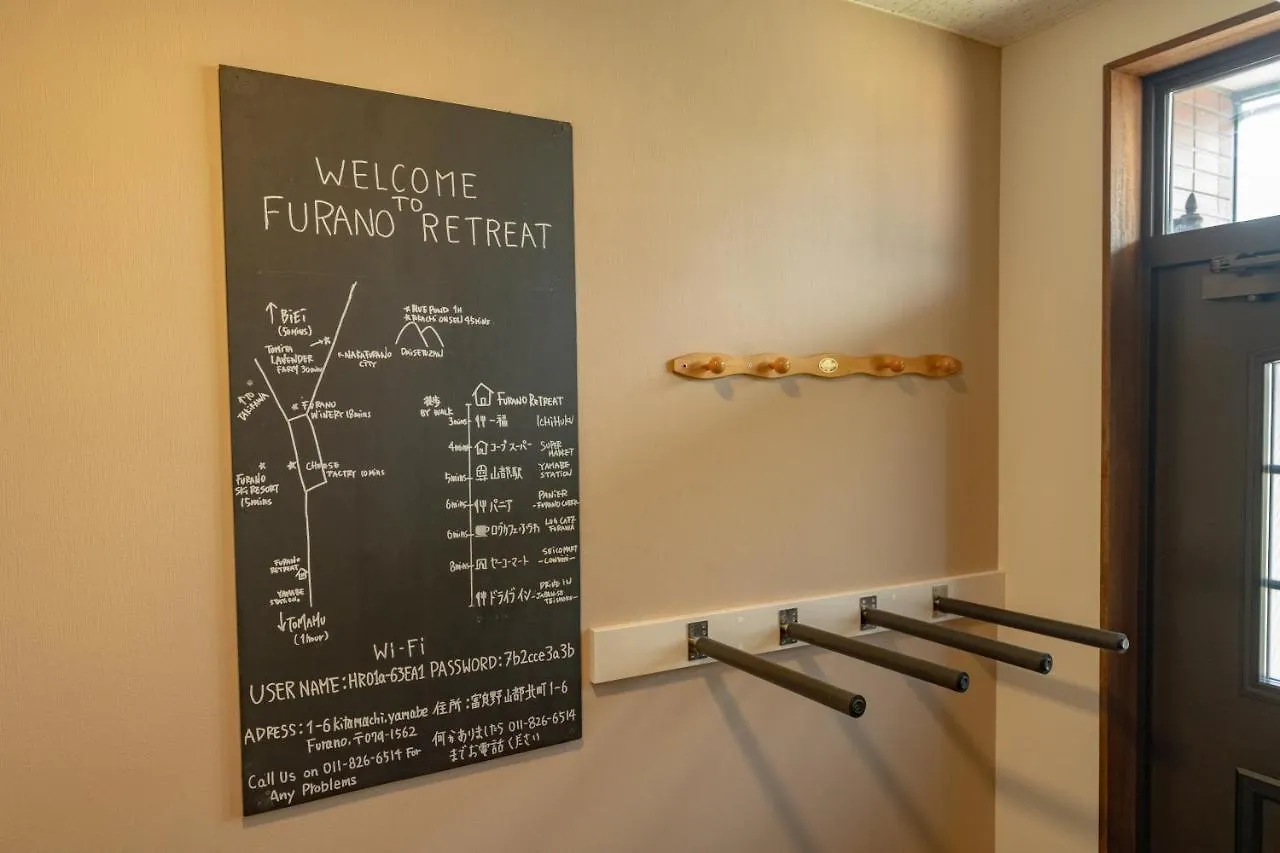 WELCOME
TO
FURANO RETREAT
↑ BiEi
(50mins)
TOMITA
LAVENDER
FARM 30mins
NAKAFURANO
CITY
★BLUE POND 1H
★TOKACHI ONSEN 45mins
DAISETUZAN
FURANO
WINERY 18mins
CHEESE
FACTRY 10mins
FURANO
SKI RESORT
15mins
FURANO
RETREAT
YAMABE
STATION
↓TOMAMU
(1hour)
徒歩
BY WALK
FURANO RETREAT
3mins 一福 ICHIHUKU
4mins コープスーパー SUPER MARKET
5mins 山部駅 YAMABE STATION
6mins パニア PANIER
6mins ログカフェ・ふらわ LOG CAFE
8mins セーコーマート SEICOMART
ドライブイン DRIVE IN
Wi-Fi
USER NAME:HR01a-63EA1 PASSWORD:7b2cce3a3b
ADRESS:1-6 kitamachi,yamabe 住所:富良野山部北町1-6
Furano,〒079-1562
何かありましたら 011-826-6514
までお電話ください
Call Us on 011-826-6514 For
Any Problems